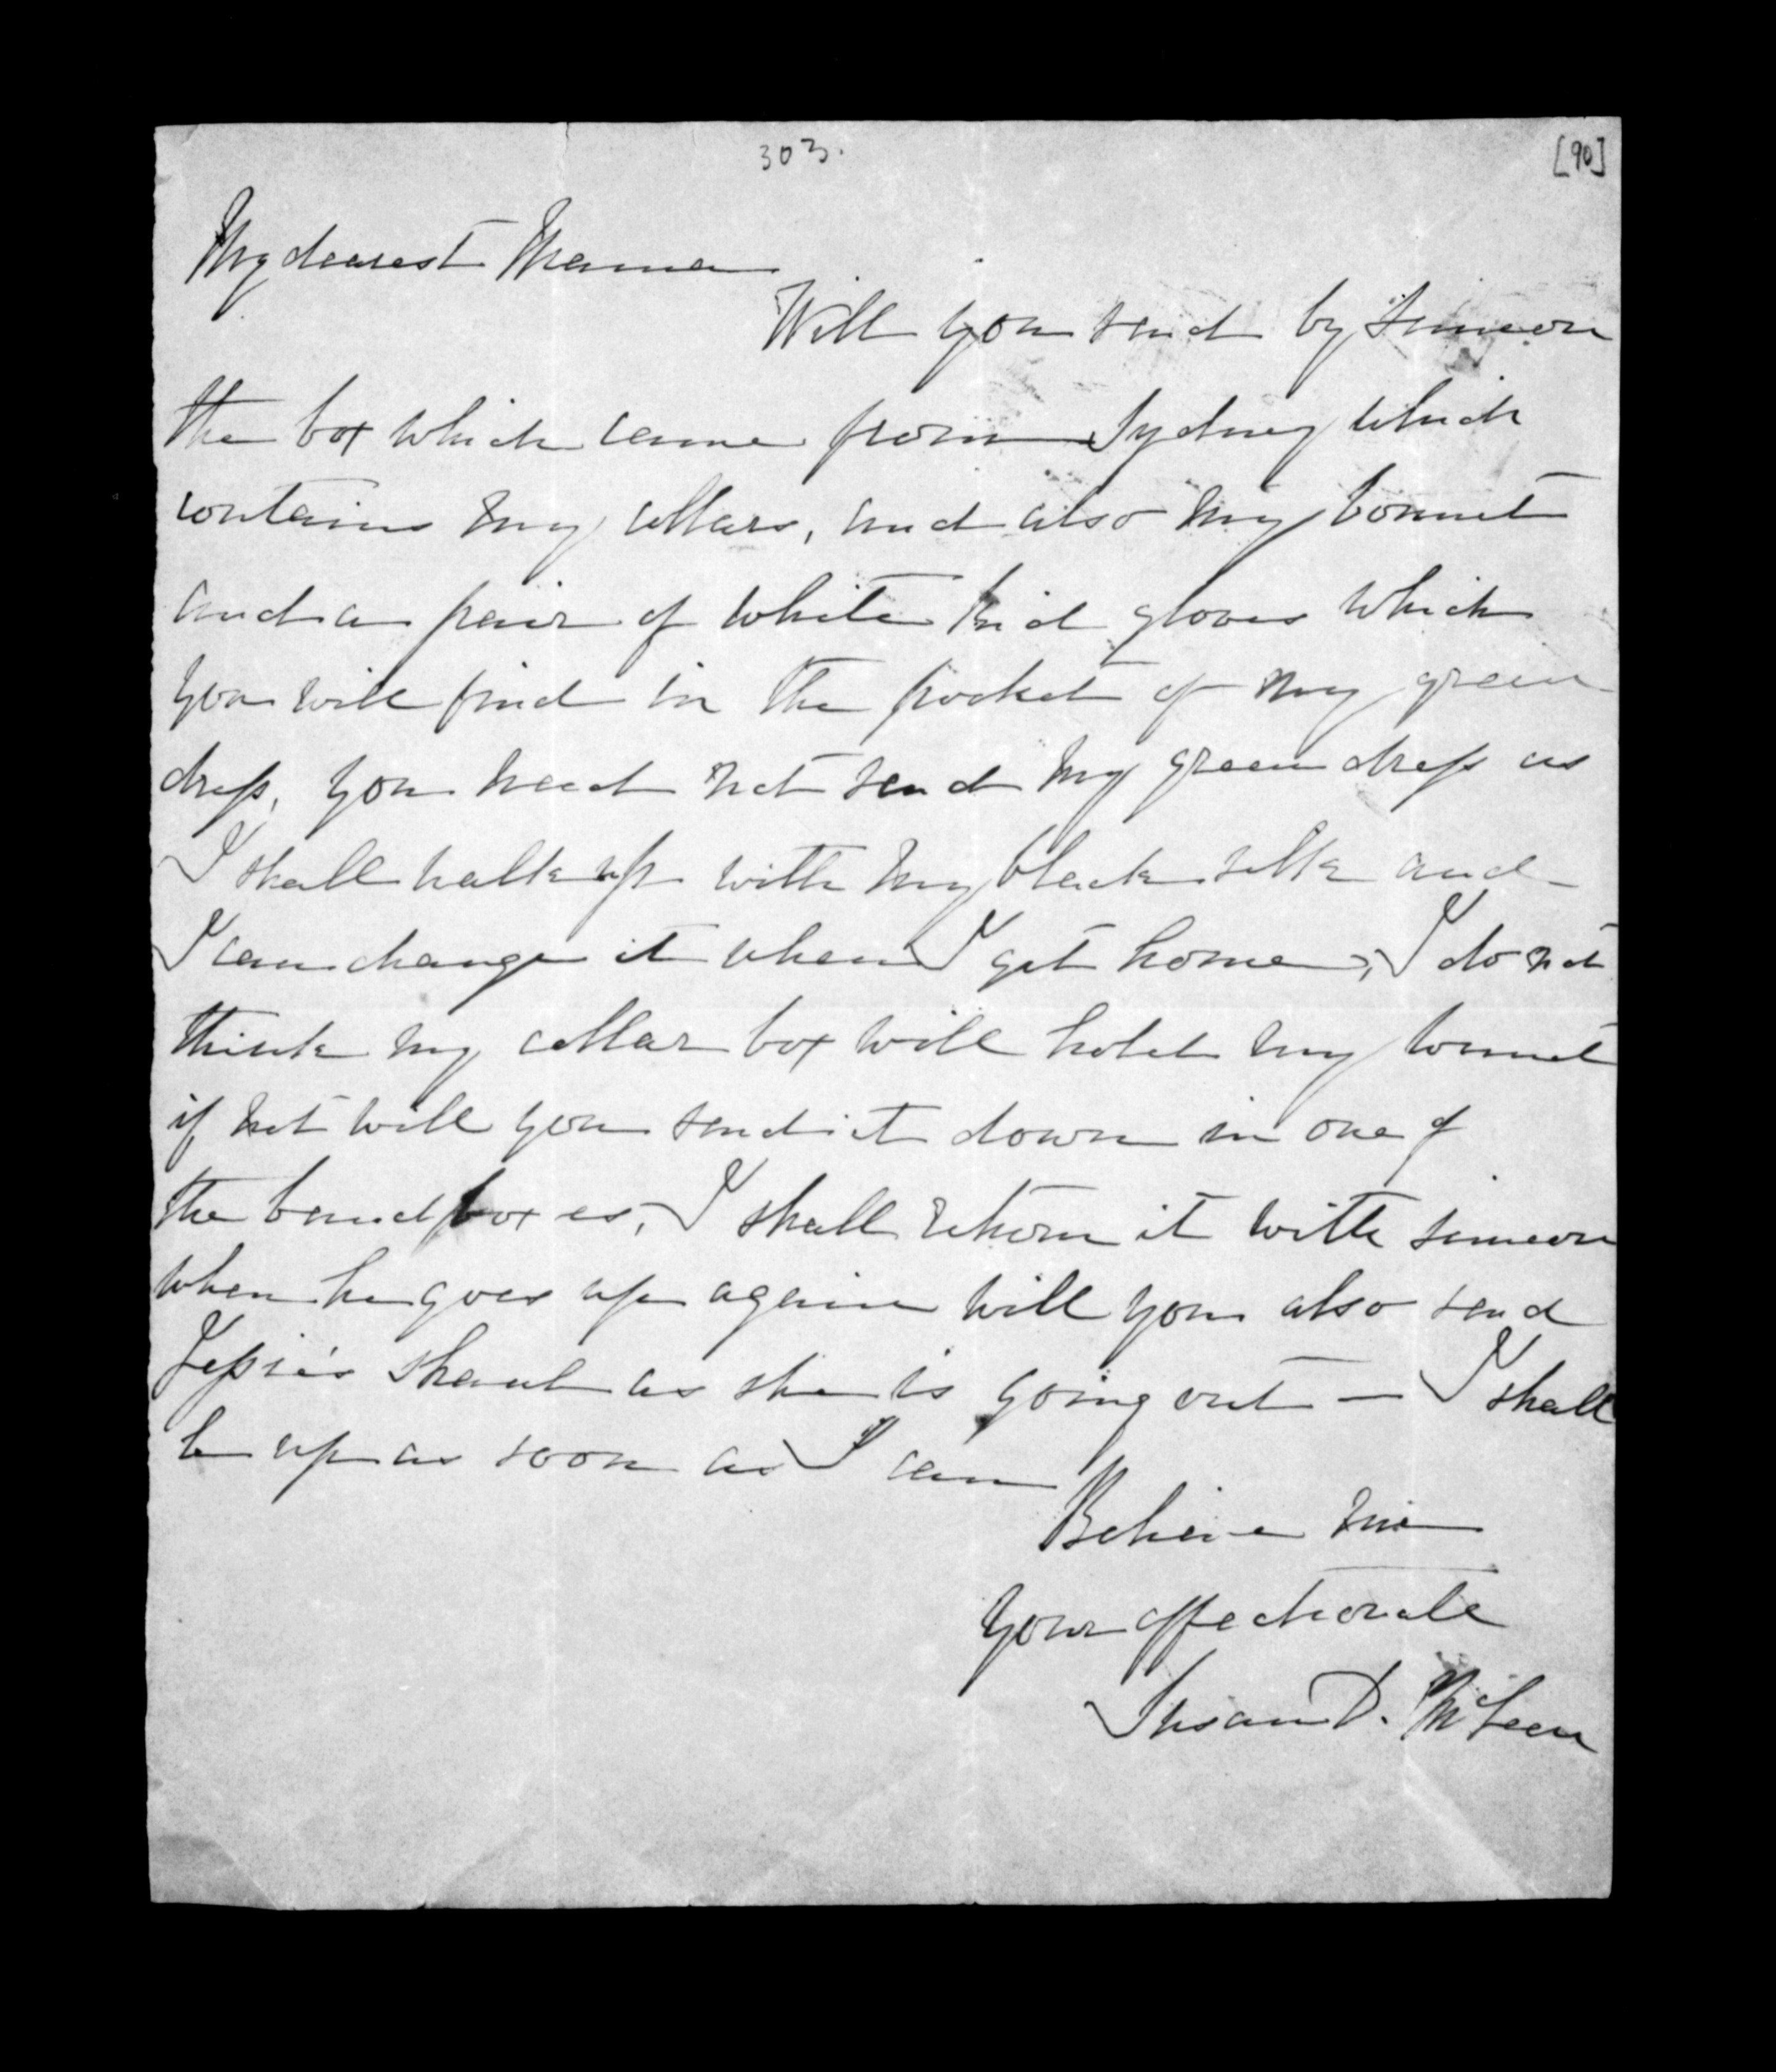 303.
[90]
My dearest Mama
Will you send by Simeon
the box which came from Sydney which
contains my collars, and also my bonnet
and a pair of white kid gloves which
you will find in the pocket of my green
dress, you need not send my green dress as
I shall walk up with my black silk and
I can change it when I get home, I do not
think my collar box will hold my bonnet
if not will you send it down in one of
the band boxes, I shall return it with Simeon
when he goes up again will you also send
Jessie's shawl as she is going out — I shall
be up as soon as I can
Believe me
Your affectionate
Susan D. McLean